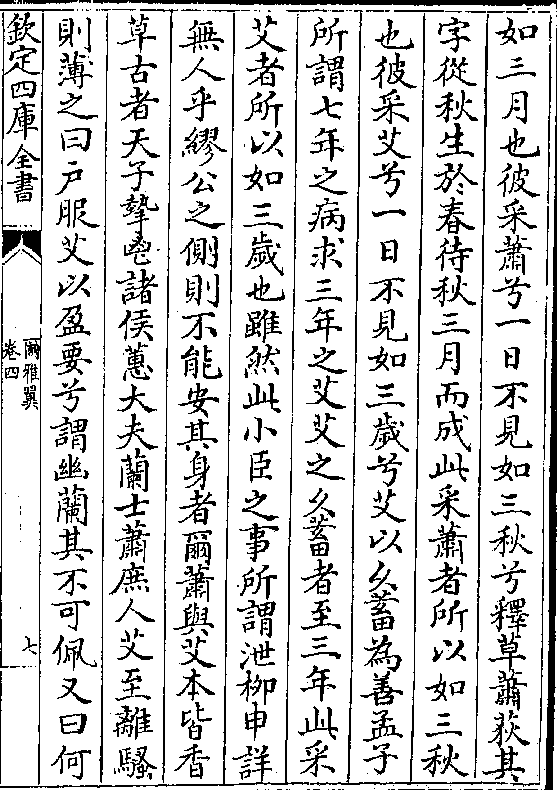 如三月也彼采蕭兮一日不見如三秋兮釋草蕭荻其
字從秋生於春待秋三月而成此采蕭者所以如三秋
也彼采艾兮一日不見如三歲兮艾以久蓄為善孟子
所謂七年之病求三年之艾艾之久蓄者至三年此采
艾者所以如三歲也雖然此小臣之事所謂泄柳申詳
無人乎繆公之側則不能安其身者爾蕭與艾本皆香
草古者天子摯鬯諸侯蕙大夫蘭士蕭庶人艾至離騷
則薄之曰戶服艾以盈要兮謂幽蘭其不可佩又曰何
欽定四庫全書
爾雅翼
卷四
七